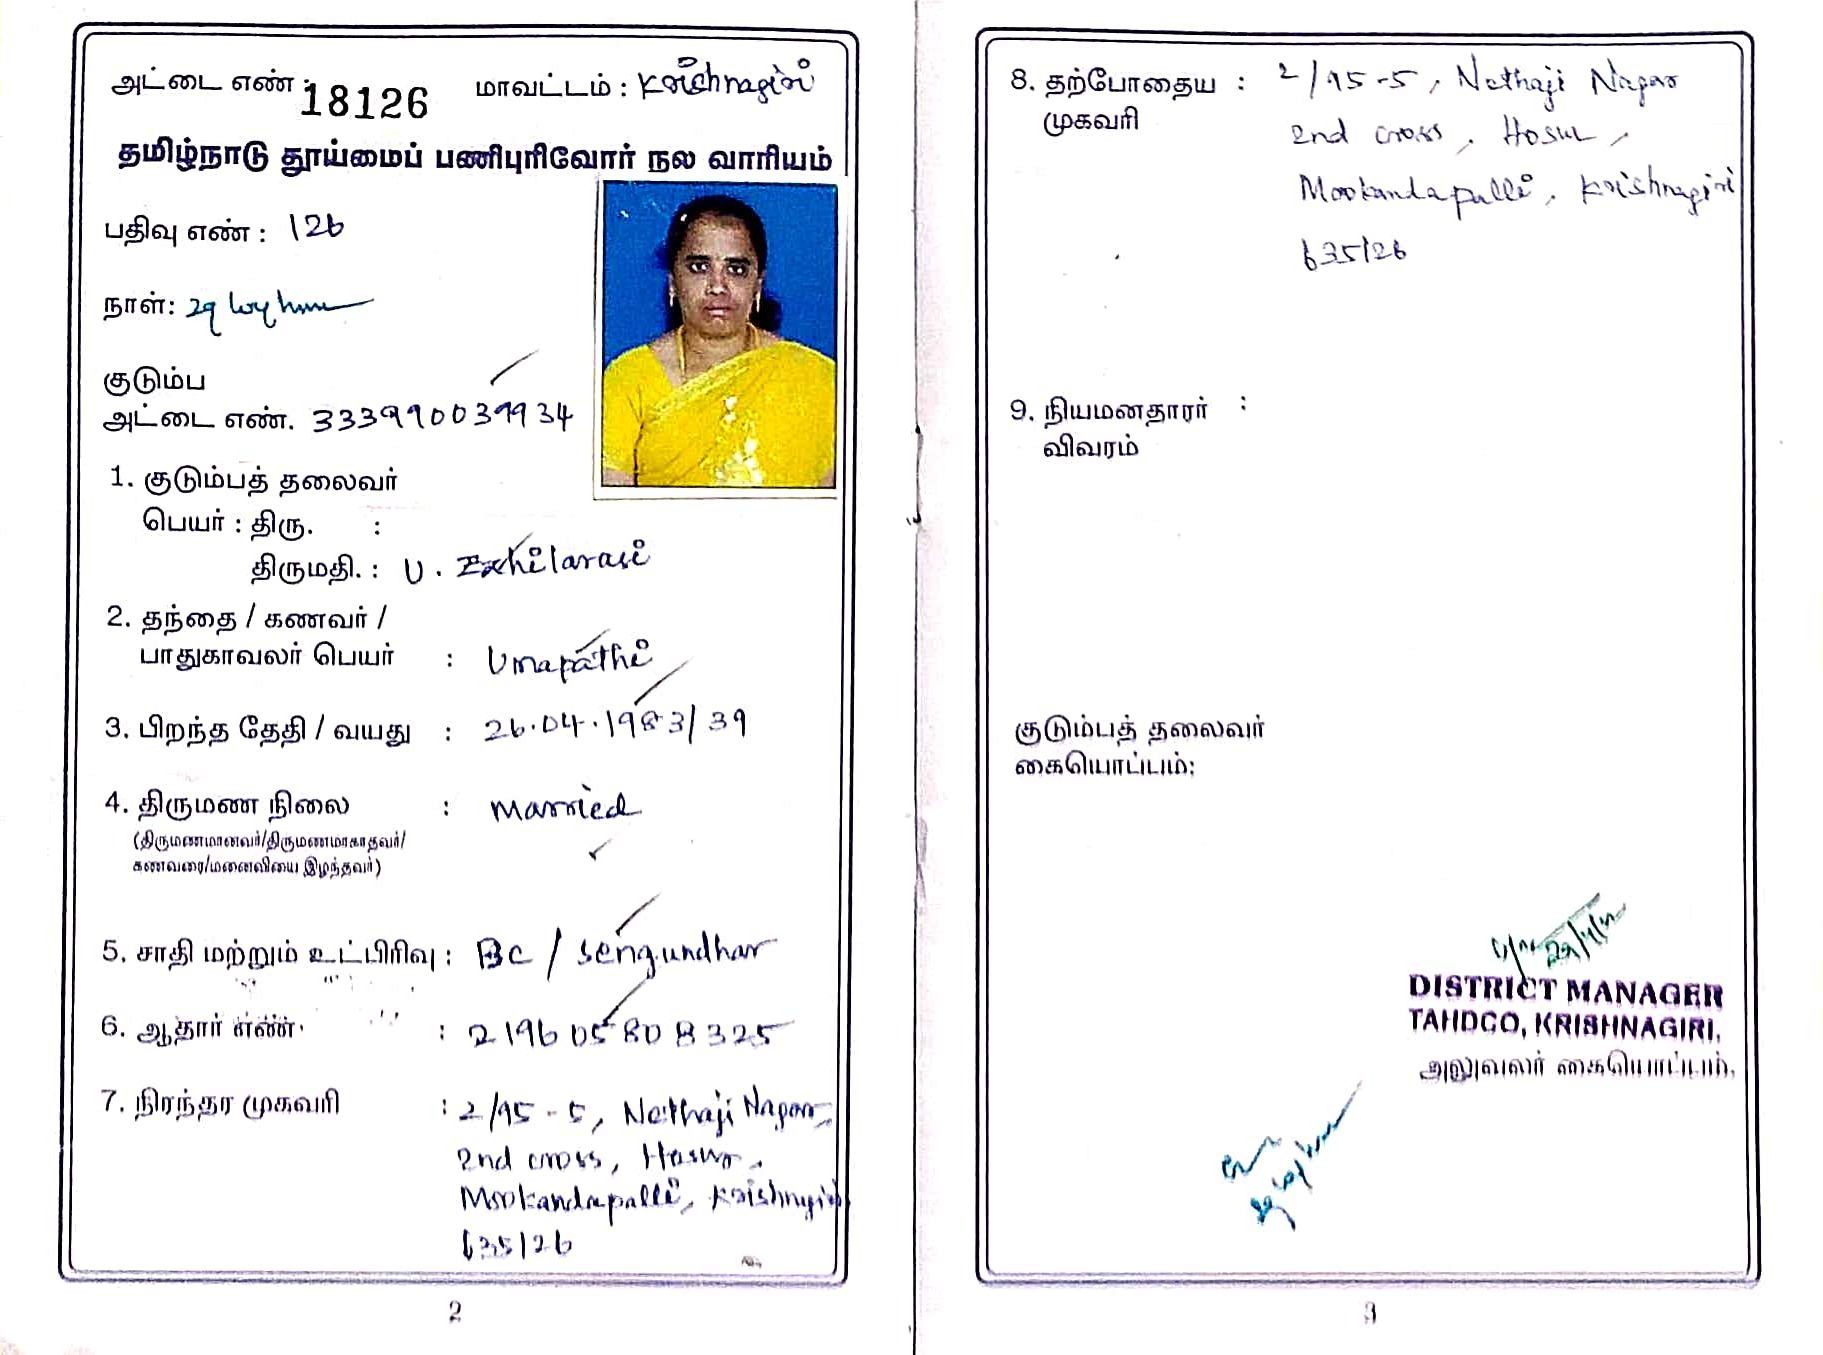 அட்டை எண் : 18126 மாவட்டம் : Krishnagiri
தமிழ்நாடு தூய்மைப் பணிபுரிவோர் நல வாரியம்
பதிவு எண் : 126
நாள்: 29
குடும்ப
அட்டை எண். 333990039934
1. குடும்பத் தலைவர்
பெயர் : திரு. :
திருமதி. : U. Ezhilarasi
2. தந்தை / கணவர் /
பாதுகாவலர் பெயர் : Umapathi
3. பிறந்த தேதி / வயது : 26.04.1983/39
4. திருமண நிலை : Married
(திருமணமானவர்/திருமணமாகாதவர்/
கணவரை/மனைவியை இழந்தவர்)
5. சாதி மற்றும் உட்பிரிவு : BC / Sengundhar
6. ஆதார் எண் : 2196 05808325
7. நிரந்தர முகவரி : 2/95-5, Nethaji Nagar,
2nd cross, Hosur,
Mookandapalli, Krishnagiri
635126
2
8. தற்போதைய : 2/95-5, Nethaji Nagar
முகவரி 2nd cross, Hosur,
Mookandapalli, Krishnagiri
635126
9. நியமனதாரர் :
விவரம்
குடும்பத் தலைவர்
கையொப்பம்:
DISTRICT MANAGER
TAHDCO, KRISHNAGIRI.
அலுவலர் கையொப்பம்.
3